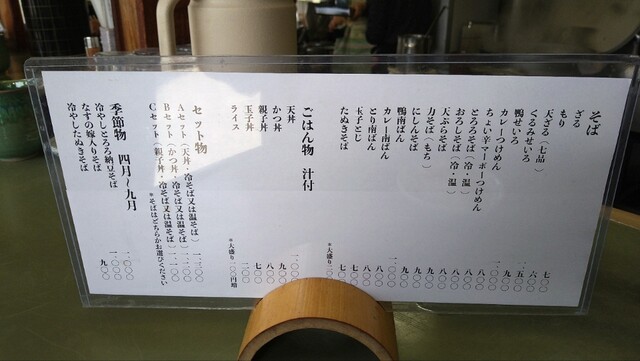 そば
ざる 七〇〇
もり 六〇〇
天ざる(七品) 一、五〇〇
くるみせいろ 九〇〇
鴨せいろ
カレーつけめん
ちょい辛マーボーつけめん
とろろそば(冷・温)
おろしそば(冷・温)
天ぷらそば
力そば(もち)
にしんそば
鴨南ばん
カレー南ばん 八〇〇
とり南ばん 八〇〇
玉子とじ 七〇〇
たぬきそば 七〇〇
*大盛り
ごはん物 汁付
天丼 一、〇〇〇
かつ丼 九〇〇
親子丼 八〇〇
玉子丼 七〇〇
ライス 二〇〇
*大盛り一〇〇円増
セット物
Aセット(天丼・冷そば又は温そば) 一、三〇〇
Bセット(かつ丼・冷そば又は温そば) 一、二〇〇
Cセット(親子丼・冷そば又は温そば) 一、一〇〇
*そばはどちらかお選びください
季節物 四月~九月
冷やしとろろ納豆そば 一、〇〇〇
なすの嫁入りそば 一、〇〇〇
冷やしたぬきそば 九〇〇